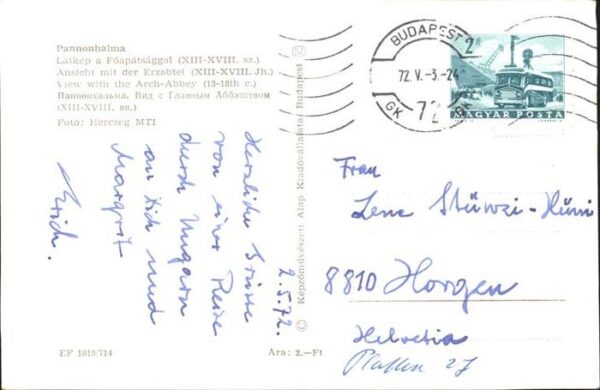 Pannonhalma
Látkép a Főapátsággal (XIII-XVIII. sz.)
Ansicht mit der Erzabtei (XIII-XVIII. Jh.)
View with the Arch-Abbey (13-18th c.)
Паннонхальма. Вид с Главным Аббатством
(XIII-XVIII. вв.)
Foto: Herczeg MTI
2.5.72.
Herzliche Grüsse
von einer Reise
durch Ungarn
an Dich und
Margrit
Erich.
EF 1019/714
Ara: 2,—Ft
© Képzőművészeti Alap Kiadóvállalata, Budapest
BUDAPEST
72.V.-3.-24
GK 72 GK
2 Ft
MAGYAR POSTA
Frau
Lene Stünzi-Hüni
8810 Horgen
Helvetia